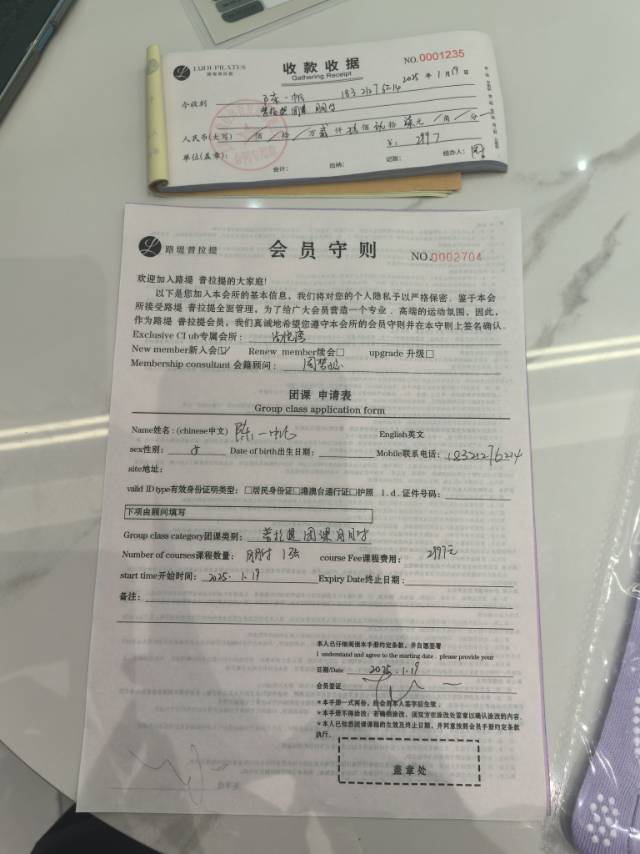 LUDI PILATES
路堤普拉提
收款收据
Gathering Receipt
NO.0001235
2025年1月19日
今收到 陈一帆
普拉提团课 月付
人民币(大写) 佰 拾 万 贰仟 玖佰 玖拾 柒元 角 分
¥: 2997
单位(盖章):
会计: 出纳: 记账: 经办人:
路堤普拉提
会员守则
NO.0002704
欢迎加入路堤 普拉提的大家庭!
以下是您加入本会所的基本信息,我们将对您的个人隐私予以严格保密。鉴于本会
所接受路堤 普拉提全面管理,为了给广大会员营造一个专业、高端的运动氛围,因此,
作为路堤 普拉提会员,我们真诚地希望您遵守本会所的会员守则并在本守则上签名确认。
Exclusive Cl ub专属会所:
New member新入会☑ Renew member续会□ upgrade 升级□
Membership consultant 会籍顾问:
团课 申请表
Group class application form
Name姓名: (chinese中文) 陈一帆 English英文
sex性别: 女 Date of birth出生日期: Mobile联系电话:
site地址:
valid ID type有效身份证明类型: □居民身份证□港澳台通行证□护照 I . d . 证件号码:
下项由顾问填写
Group class category团课类别: 普拉提团课月付
Number of courses课程数量: 月付 1张 course Fee课程费用: 2997元
start time开始时间: 2025.1.19 Expiry Date终止日期:
备注:
本人已仔细阅读本手册约定条款,并自愿签署
I understand and agree to the starting date , please provide your
日期/Date 2025.1.19
会员签证
*本手册一式两份,经会员本人签字后生效。
*本手册不得涂改;若确需涂改,须双方在涂改处盖章以确认涂改的内容。
*本人已知悉团课课程的生效及终止日期,并同意按照会员手册约定条款
执行。
盖章处